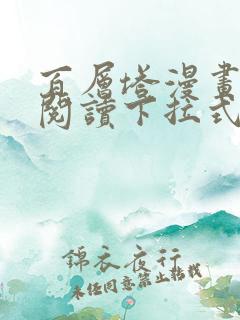 百層塔漫畫
閱讀下拉式
錦衣夜行
未經同意禁止轉載